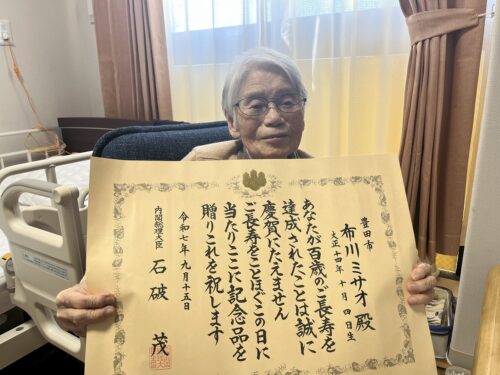 豊田市
布川ミサオ 殿
大正十四年十月四日生
あなたが百歳のご長寿を
達成されたことは誠に
慶賀にたえません
ご長寿をことほぎこの日に
当たりここに記念品を
贈りこれを祝します
令和七年九月十五日
内閣総理大臣 石破 茂